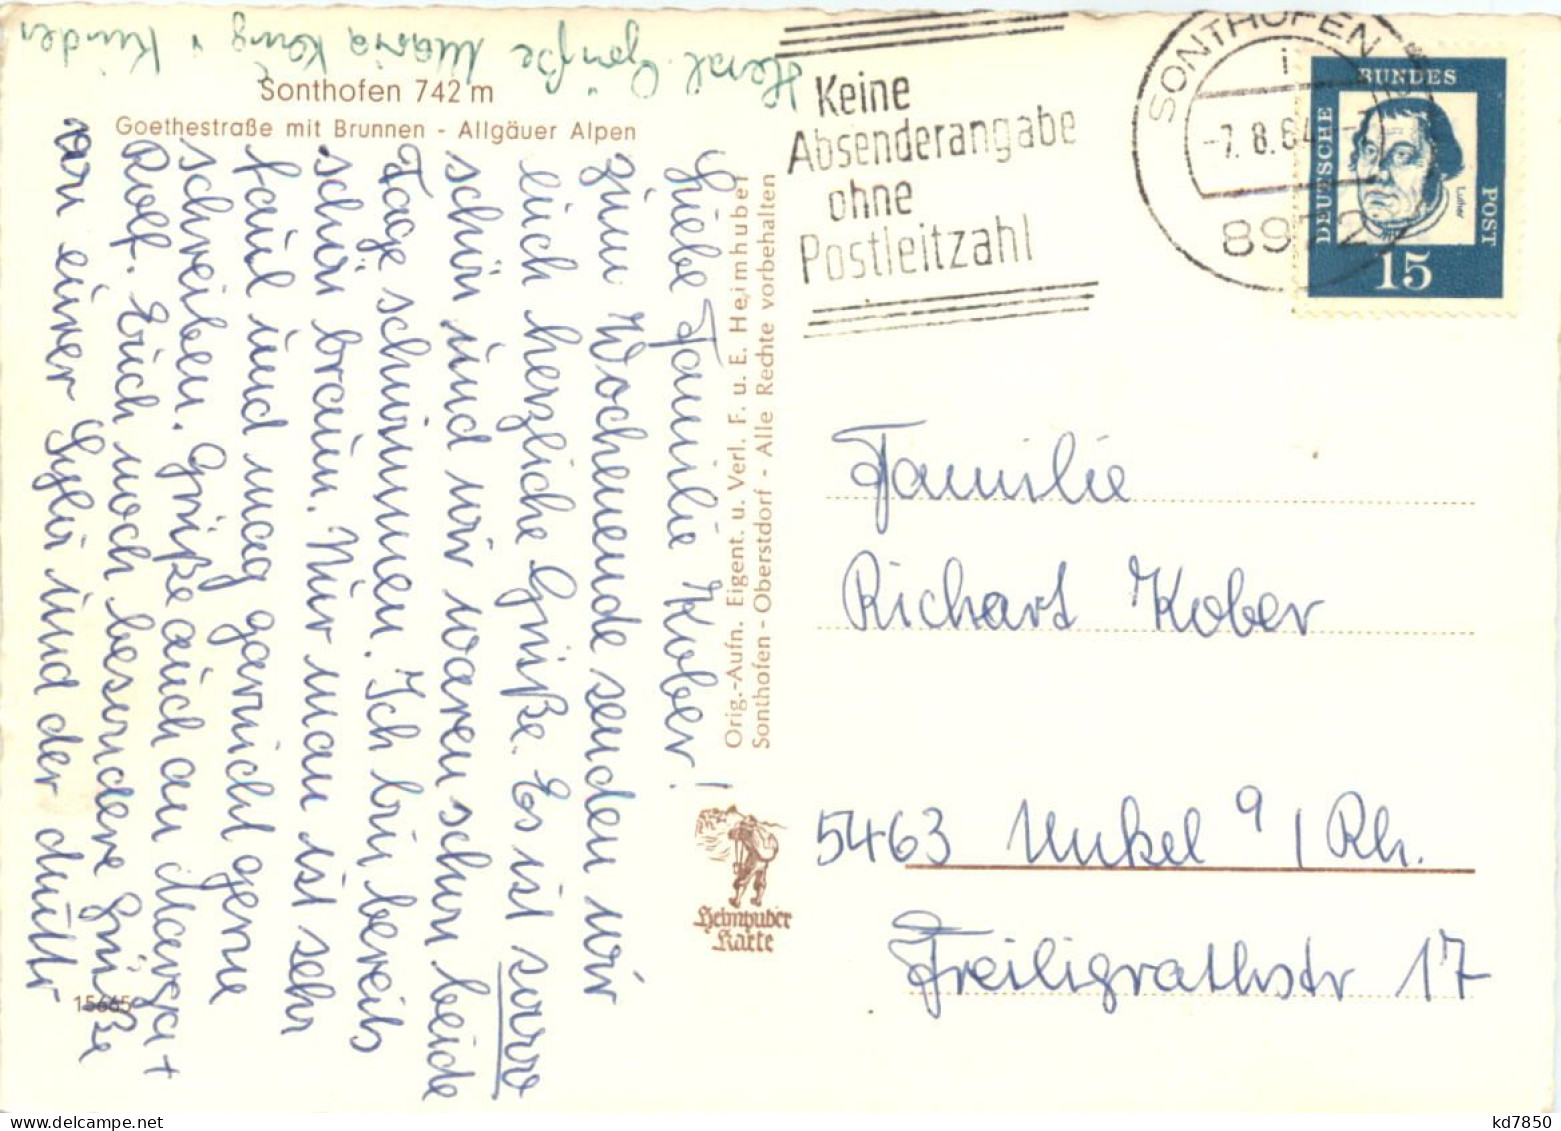 Sonthofen 742 m
Goethestraße mit Brunnen - Allgäuer Alpen
Herzl. Grüße Maria König u Kinder
Liebe Familie Kober!
Zum Wochenende senden wir
Euch herzliche Grüße. Es ist
schön und wir waren schon beide
Tage schwimmen. Ich bin bereits
schön braun. Nur man ist sehr
faul und mag garnicht gerne
schreiben. Grüße auch an Marga +
Rolf. Euch noch besondere Grüße
von eurer Sylvi und der
15665
Orig.-Aufn. Eigent. u. Verl. F. u. E. Heimhuber
Sonthofen - Oberstdorf - Alle Rechte vorbehalten
Heimhuber
Karte
Keine
Absenderangabe
ohne
Postleitzahl
SONTHOFEN
-7.8.64
8972
DEUTSCHE
BUNDES
POST
Luther
15
Familie
Richart Kober
5463 Unkel a/Rh.
Freiligrathstr 17
kd7850